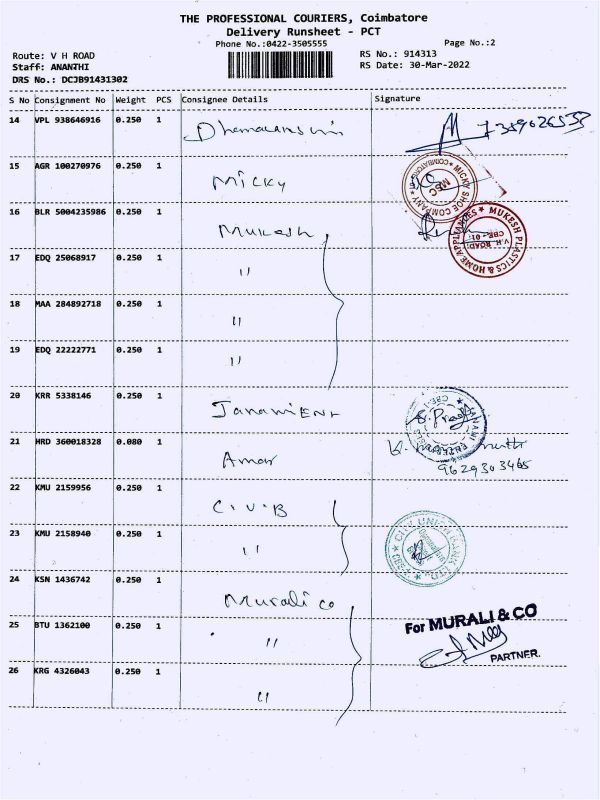 THE PROFESSIONAL COURIERS, Coimbatore
Delivery Runsheet - PCT
Phone No.:0422-3505555
Page No.:2
Route: V H ROAD
RS No.: 914313
Staff: ANANTHI
RS Date: 30-Mar-2022
DRS No.: DCJB91431302
S No Consignment No Weight PCS Consignee Details Signature
14 VPL 938646916 0.250 1
15 AGR 100270976 0.250 1 Micky
MICKY SHOE COMPANY ★ COIMBATORE
MSC
16 BLR 5004235986 0.250 1 Mukesh
★ MUKESH PLASTICS & HOME APPLIANCES
V.H. ROAD, CBE - 01.
17 EDQ 25068917 0.250 1 "
18 MAA 284892718 0.250 1 "
19 EDQ 22222771 0.250 1 "
20 KRR 5338146 0.250 1 Janani Ent
21 HRD 360018328 0.080 1 Amar
9629303465
22 KMU 2159956 0.250 1 C.U.B
23 KMU 2158940 0.250 1 "
CITY UNION BANK LTD.
24 KSN 1436742 0.250 1 Murali co
25 BTU 1362100 0.250 1 "
For MURALI & CO
PARTNER.
26 KRG 4326043 0.250 1 "